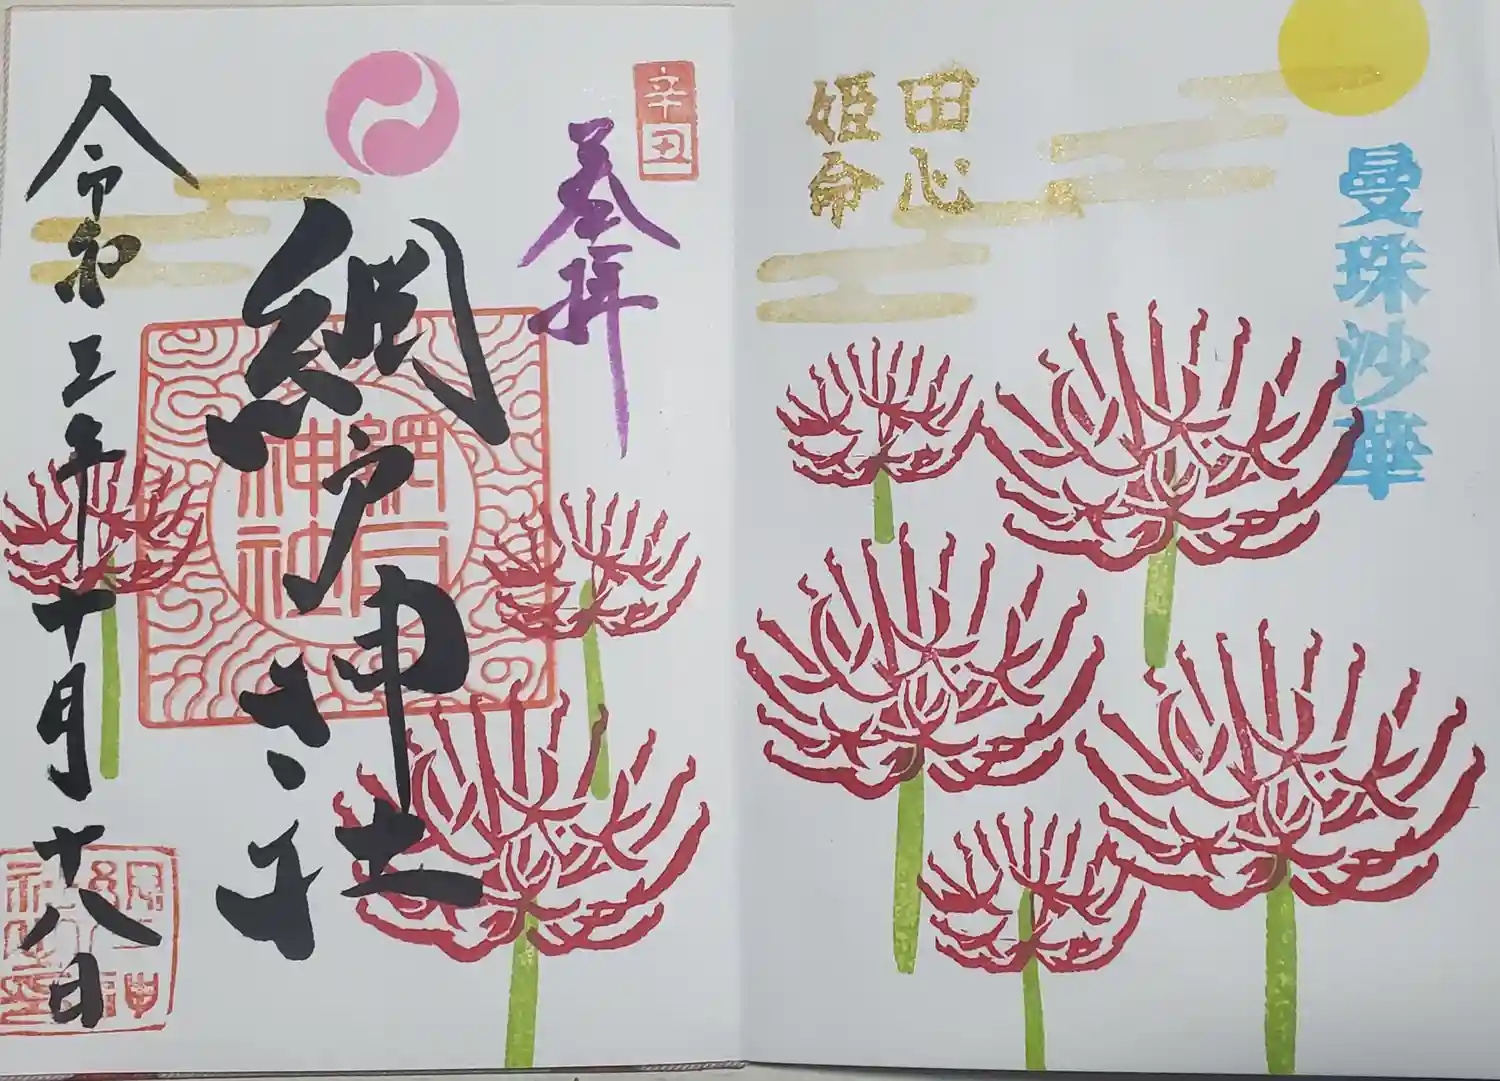 曼珠沙華
田心
姫命
辛丑
奉拝
網戸神社
網戸
神社
令和三年十月十八日